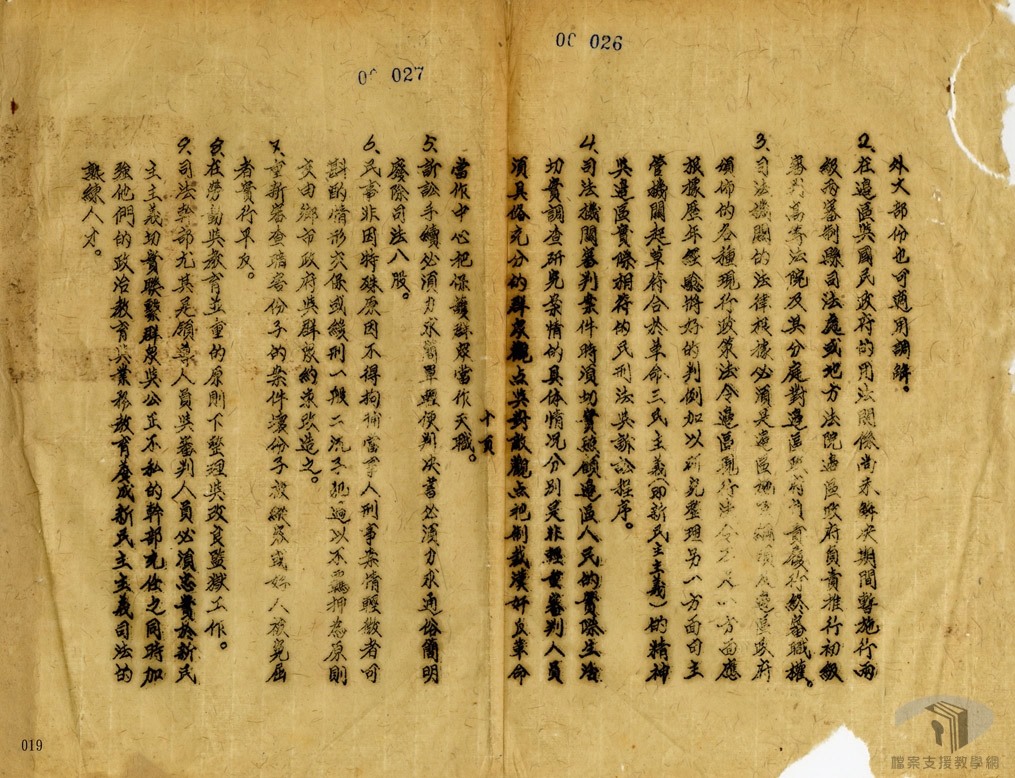 00 026
外大部份也可適用調解。
2、在邊區與國民政府的司法關係尚未解決期間暫施行兩
級秀審制縣司法處或地方法院邊區政府負責推行初級
審判高等法院及其分庭對邊區政府負責履行終審職權。
3、司法機關的法律根據必須是邊區施政綱領及邊區政府
頒佈的各種現行政策法令邊區現行法令不足一方面應
根據歷年經驗將好的判例加以研究整理另一方面司主
管機關起草符合於革命三民主義(即新民主主義)的精神
與邊區實際相符的民刑法與訴訟程序。
4、司法機關審判案件時須切實照顧邊區人民的實際生活
切實調查研究案情的具体情况分別是非輕重審判人員
須具俻充分的群衆觀点與對敵觀点把制裁漢奸反革命
十頁
00 027
當作中心把保護群眾當作天職。
5、訴訟手續必須力求簡單輕便判决書必須力求通俗簡明
廢除司法八股。
6、民事非因特殊原因不得拘捕當事人刑事案情輕微者可
斟酌情形交保或緩刑一般二流子犯過以不羈押為原則
交由鄉市政府與群眾約束改造之。
7、重新審查暗害份子的案件壞份子被縱容或好人被冤屈
者實行平反。
8、在勞動與教育並重的原則下整理與改良監獄工作。
9、司法幹部尤其是領導人員與審判人員必須忠實於新民
主主義切實聯繫群衆與公正不私的幹部充任之同時加
强他們的政治教育與業務教育養成新民主主義司法的
熟練人才。
019
檔案支援教學網